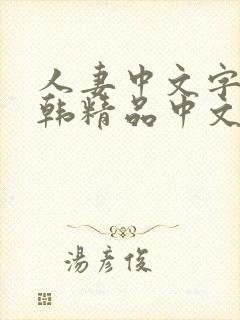 人妻中文字
韩精品中文
湯彦俊